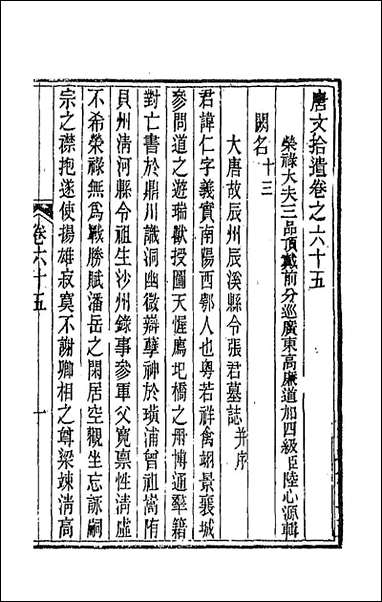 唐文拾遺卷之六十五
榮祿大夫三品頂戴前分巡廣東高廉道加四級臣陸心源輯
闕名十三
大唐故辰州辰溪縣令張君墓誌并序
君諱仁字義實南陽西鄂人也粵若祥禽翊景襄城
參問道之遊瑞獸授圖天惺膺圯橋之冊博通羣籍
對亡書於鼎川識洞幽微辯孽神於璜浦曾祖嵩隋
貝州淸河縣令祖生沙州錄事參軍父寬禀性淸虛
不希榮祿無爲戰勝賦潘岳之閑居空觀坐忘詠嗣
宗之襟抱遂使揚雄寂寞不謝卿相之尊梁竦淸高
卷六十五
一